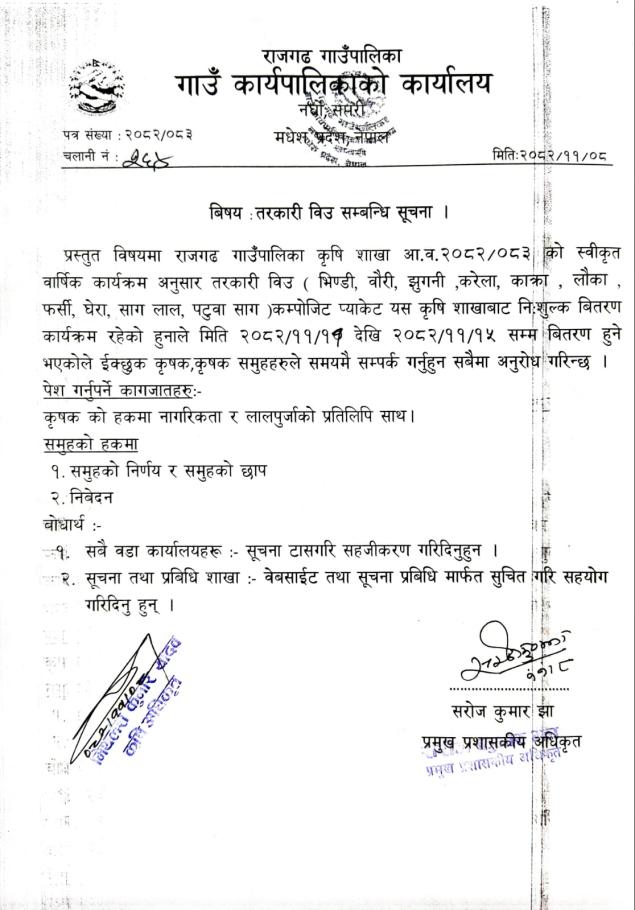 राजगढ गाउँपालिका
गाउँ कार्यपालिकाको कार्यालय
नर्घो, सप्तरी
मधेश प्रदेश, नेपाल
पत्र संख्या : २०८२/०८३
चलानी नं : २६४
मिति:२०८२/११/०८
बिषय : तरकारी विउ सम्बन्धि सूचना ।
प्रस्तुत विषयमा राजगढ गाउँपालिका कृषि शाखा आ.व.२०८२/०८३ को स्वीकृत
वार्षिक कार्यक्रम अनुसार तरकारी विउ ( भिण्डी, वौरी, झुगनी ,करेला, काक्रा , लौका ,
फर्सी, घेरा, साग लाल, पटुवा साग )कम्पोजिट प्याकेट यस कृषि शाखाबाट नि:शुल्क बितरण
कार्यक्रम रहेको हुनाले मिति २०८२/११/११ देखि २०८२/११/१५ सम्म बितरण हुने
भएकोले ईक्छुक कृषक,कृषक समुहहरुले समयमै सम्पर्क गर्नुहुन सबैमा अनुरोध गरिन्छ ।
पेश गर्नुपर्ने कागजातहरु:-
कृषक को हकमा नागरिकता र लालपुर्जाको प्रतिलिपि साथ।
समुहको हकमा
१. समुहको निर्णय र समुहको छाप
२. निबेदन
बोधार्थ :-
१. सबै वडा कार्यालयहरू :- सूचना टासगरि सहजीकरण गरिदिनुहुन ।
२. सूचना तथा प्रबिधि शाखा :- वेबसाईट तथा सूचना प्रबिधि मार्फत सुचित गरि सहयोग
गरिदिनु हुन् ।
कुमार यादव
कृषि अधिकृत
सरोज कुमार झा
प्रमुख प्रशासकीय अधिकृत
प्रमुख प्रशासकीय अधिकृत